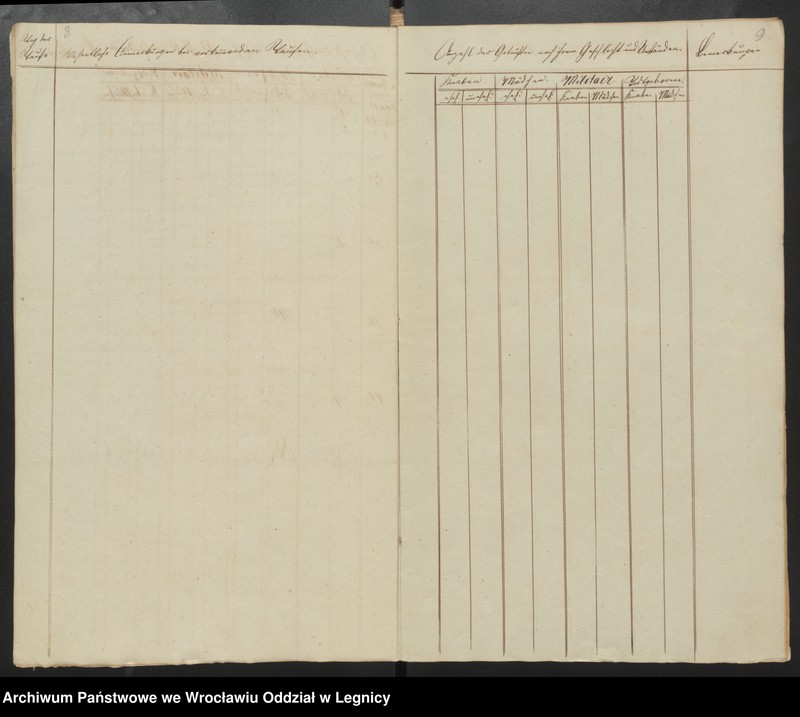 Tag der
Taufe.
8
Wesentliche Anmerkungen bei vorkommenden Taufen.
9
Anzahl der Getauften nach ihrem Geschlecht und
Bemerkungen
Knaben. Mädchen. Militair Todtgeborene
ehel: unehel: ehel: unehel: Knaben Mädchen Knaben Mädchen
Archiwum Państwowe we Wrocławiu Oddział w Legnicy